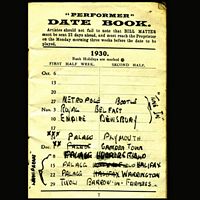 "PERFORMER"
DATE BOOK.
Artistes should not fail to note that BILL MATTER
must be sent 21 days ahead, and must reach the Proprietor
on the Monday morning three weeks before the date to be
played.
1930.
Bank Holidays are marked
FIRST HALF WEEK. SECOND HALF.
Oct. 6
13
20
27 METROPOLE BOOTLE
Nov. 3 ROYAL BELFAST
10 EMPIRE
XXX PALACE PLYMOUTH
XXX
Dec. CAMDEN TOWN
8 PALACE
15 PALACE
22 PALACE WARRINGTON
29 TIVOLI BARROW-IN-FURNESS